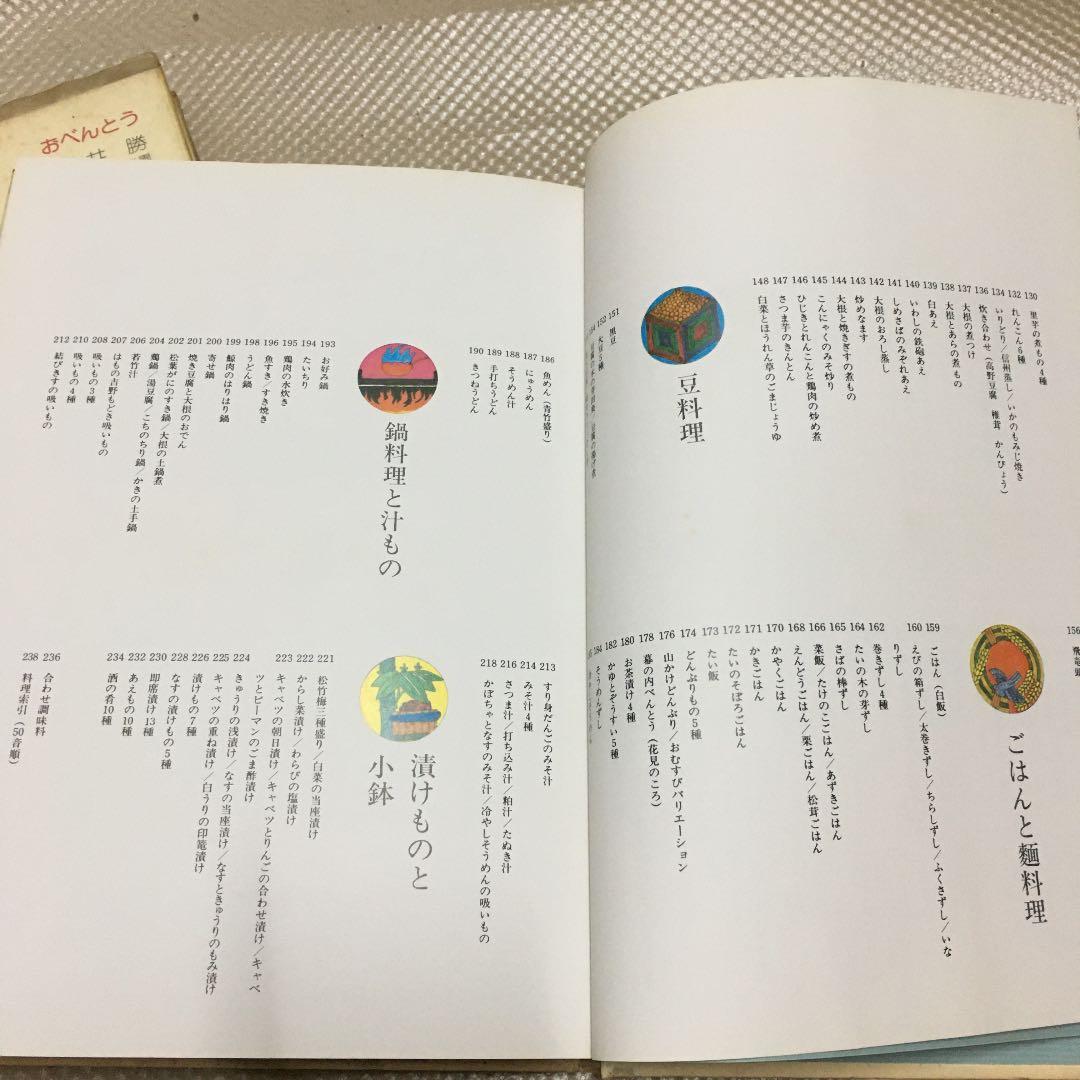 おべんとう
井 勝
130 里芋の煮もの4種
132 れんこん6種
134 いりどり/信州蒸し/いかのもみじ焼き
136 炊き合わせ(高野豆腐 椎茸 かんぴょう)
137 大根の煮つけ
138 大根とあらの煮もの
139 白あえ
140 いわしの鉄砲あえ
141 しめさばのみぞれあえ
142 大根のおろし蒸し
143 炒めなます
144 大根と焼きぎすの煮もの
145 こんにゃくのみそ炒り
146 ひじきとれんこんと鶏肉の炒め煮
147 さつま芋のきんとん
148 白菜とほうれん草のごまじょうゆ
豆料理
151 黒豆
152 大豆5種
156
ごはんと麺料理
159 ごはん(白飯)
160 えびの箱ずし/太巻きずし/ちらしずし/ふくさずし/いな
りずし
162 巻きずし4種
164 たいの木の芽ずし
165 さばの棒ずし
166 菜飯/たけのこごはん/あずきごはん
168 えんどうごはん/栗ごはん/松茸ごはん
170 かやくごはん
171 かきごはん
172 たいのそぼろごはん
173 たい飯
174 どんぶりもの5種
176 山かけどんぶり/おむすびバリエーション
178 幕の内べんとう(花見のころ)
180 お茶漬け4種
182 かゆとぞうすい5種
184 そうめんずし
186 魚めん(青竹盛り)
187 にゅうめん
188 そうめん汁
189 手打ちうどん
190 きつねうどん
鍋料理と汁もの
193 お好み鍋
194 たいちり
195 鶏肉の水炊き
196 魚すき/すき焼き
198 うどん鍋
199 鯨肉のはりはり鍋
200 寄せ鍋
201 焼き豆腐と大根のおでん
202 松葉がにのすき鍋/大根の土鍋煮
204 鶏鍋/湯豆腐/こちのちり鍋/かきの土手鍋
206 若竹汁
207 はもの吉野もどき吸いもの
208 吸いもの3種
210 吸いもの4種
212 結びきすの吸いもの
213 すり身だんごのみそ汁
214 みそ汁4種
216 さつま汁/打ち込み汁/粕汁/たぬき汁
218 かぼちゃとなすのみそ汁/冷やしそうめんの吸いもの
漬けものと
小鉢
221 松竹梅三種盛り/白菜の当座漬け
222 からし菜漬け/わらびの塩漬け
223 キャベツの朝日漬け/キャベツとりんごの合わせ漬け/キャベ
ツとピーマンのごま酢漬け
224 きゅうりの浅漬け/なすの当座漬け/なすときゅうりのもみ漬け
225 キャベツの重ね漬け/白うりの印篭漬け
226 漬けもの7種
228 なすの漬けもの5種
230 即席漬け13種
232 あえもの10種
234 酒の肴10種
236 合わせ調味料
238 料理索引(50音順)